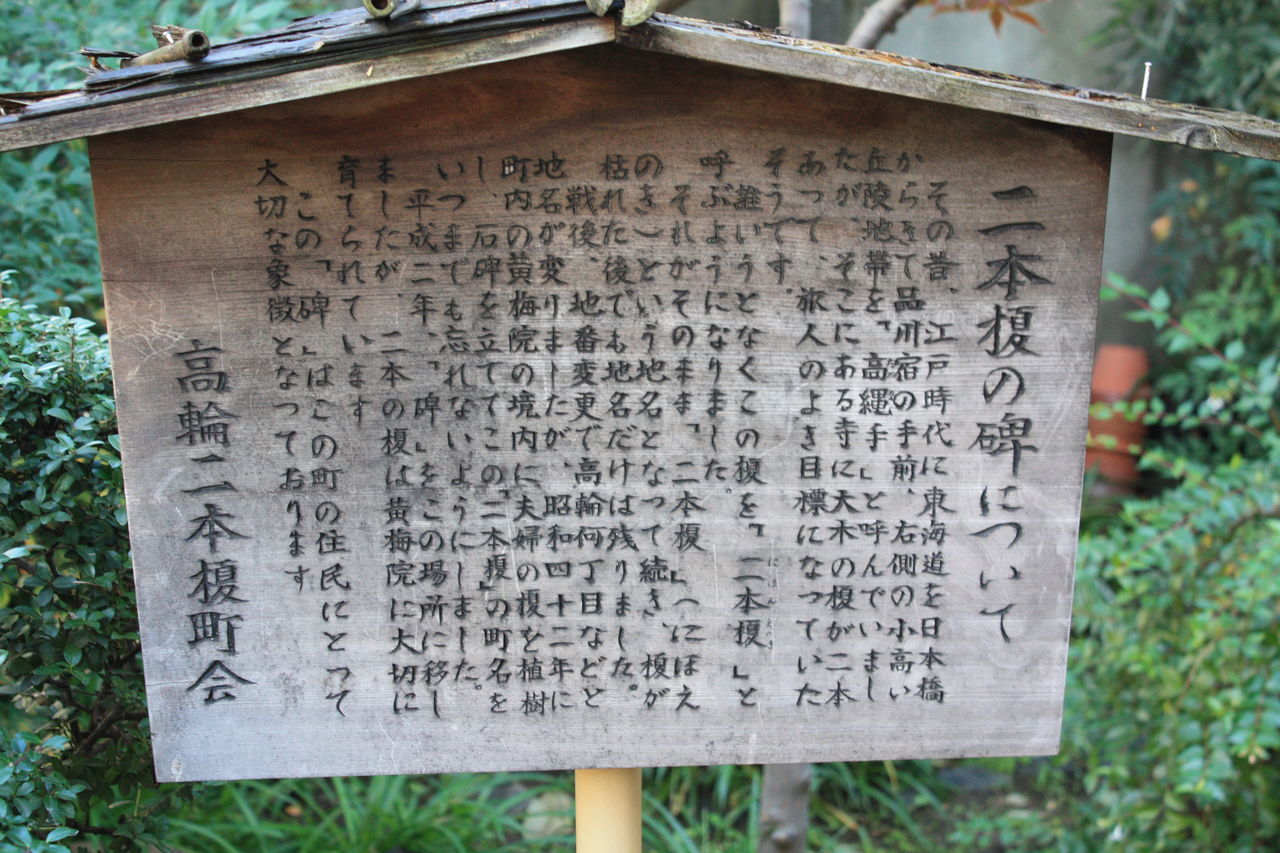 二本榎の碑について
その昔、江戸時代に東海道を日本橋
からきて品川宿の手前、右側の小高い
丘陵地帯を「高縄手」と呼んでいまし
たが、そこにある寺に大木の榎が二本
あって、旅人のよき目標になっていた
そうです。
誰いうとなくこの榎を「二本榎」と
呼ぶようになりました。
それがそのまま「二本榎」(にほえ
のき)という地名となって続き、榎が
枯れた後でも地名だけは残りました。
戦後、地番変更で高輪何丁目などと
地名が変りましたが、昭和四十二年に
町内の黄梅院の境内に夫婦の榎を植樹
し、石碑を立ててこの「二本榎」の町名を
いつまでも忘れないようにしました。
平成二年、「碑」をこの場所に移し
ましたが、二本の榎は黄梅院に大切に
育てられています
この、「碑」はこの町の住民にとって
大切な象徴となっております
高輪二本榎町会